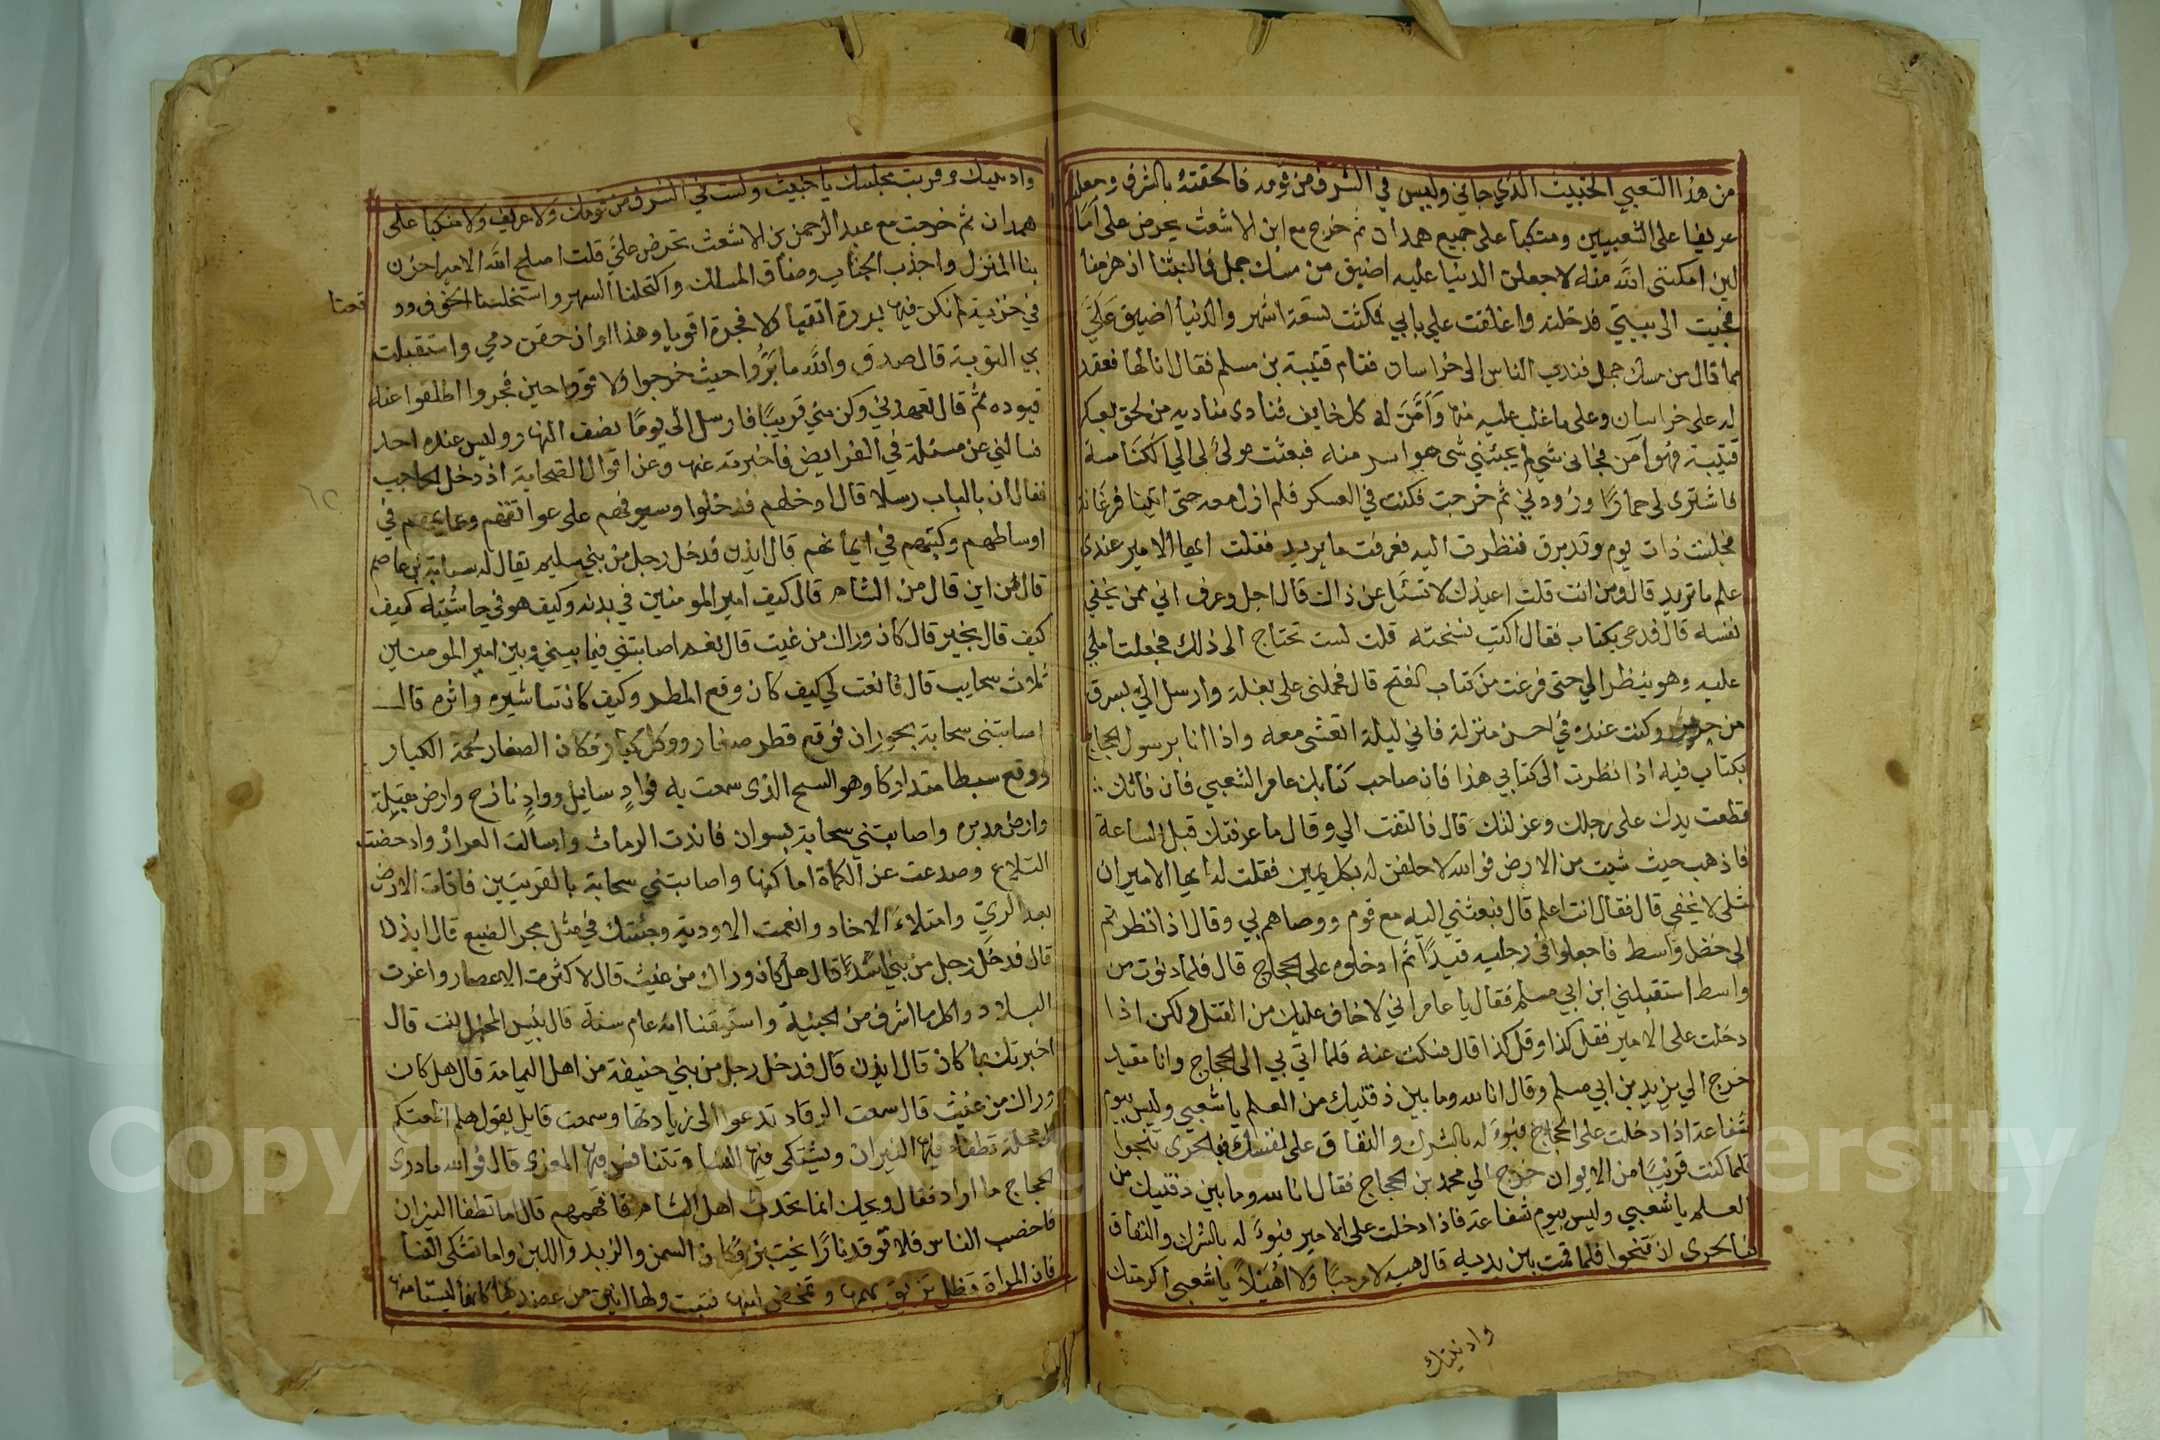 من هذا الشعبي الخبيث الذي جاني وليس في الشرف من قومه فالحقته بالشرف وجعلته
عريفا على الشعبيين ومنكبا على جميع همدان ثم خرج مع ابن الاشعث يحرض على اما
لين امكنني الله منه لاجعلن الدنيا عليه اضيق من مسك جمل فالبثنا اذ هزمنا
فجيت الى بيتي فدخلته واغلقت علي بابي فمكثت تسعة اشهر والدنيا اضيق عَلَيَّ
مما قال من مسك جمل فندب الناس الى خراسان فقام قتيبة بن مسلم فقال انا لها فعقد
له على خراسان وعلى ما غلب عليه منها وَاَمَّنَ له كل خايف فنادى مناديه من لحق بعسكر
قتيبة فهو آمن فجاني شي لم يجئني شي هو اسر منه فبعثت مولىً لي الى الكناسة
فاشترى لي حمارًا وزودني ثم خرجت فكنت في العسكر فلم ازل معه حتى اتينا فرغانة
فجلس ذات يوم وقد برق فنظرت اليه فعرفت ما يريد فقلت ايها الامير عندي
علم ما تريد قال ومن انت قلت اعيذك لا تسئل عن ذالك قال اجل وعرف اني ممن يخفي
نفسه قال فدعى بكتاب فقال اكتب نسخته قلت لست تحتاج الى ذلك فجعلت املي
عليه وهو ينظر الي حتى فرغت من كتاب الفتح قال فحملني على بغلة وارسل الي بسرق
من حرير وكنت عنده في احسن منزلة فاني ليلة اتعشى معه واذا انا برسول الحجاج
بكتاب فيه اذا نظرت الى كتابي هذا فان صاحب كتابك عامر الشعبي فان فاتك
قطعت يدك على رجلك وعزلتك قال فالتفت الي وقال ما عرفتك قبل الساعة
فاذهب حيث شيت من الارض فوالله لاحلفن له بكل يمين فقلت له ايها الامير ان
مثلى لا يخفي قال فقال انت اعلم قال فبعثني اليه مع قوم ووصاهم بي وقال اذا نظرتم
الى خضل واسط فاجعلوا في رجليه قيدًا ثم ادخلوه على الحجاج قال فلما دنوت من
واسط استقبلني ابن ابي مسلم فقال يا عامر اني لاخاف عليك من القتل ولكن اذا
دخلت على الامير فقل كذا وقل كذا قال فسكت عنه فلما اتي بي الى الحجاج وانا مقيد
خرج الي يزيد بن ابي مسلم وقال انا لله وما بين دفتيك من العلم يا شعبي وليس بيوم
شفاعة اذا دخلت على الحجاج فبوءَ له بالشرك والنفاق على نفسك فبالحرى تنجوا
فلما كنت قريبًا من الايوان خرج الي محمد بن الحجاج فقال انا لله وما بين دفتيك من
العلم يا شعبي وليس بيوم شفاعة فاذا دخلت على الامير فبوءَ له بالشرك والنفاق
فبالحرى ان تنجوا فلما قمت بين يديه قال هيه لا مرحبًا ولا اهْيَلاً يا شعبي اكرمتك
وادنيتك
وادنيتك وقربت مجلسك يا خبيث ولست في الشرف من قومك ولا عريف ولا منكبا على
همدان ثم خرجت مع عبد الرحمن بن الاشعث تحرض عليَّ قلت اصلح الله الامير احزن
بنا المنزل واجذب الجناب وضاق المسلك واكتحلنا السهر واستحلسنا الخوف وو
قعنا
في خزية لم نكن فيها بررة اتقيا ولا فجرة اقويا وهذا اوان حقن دمي واستقبلت
بي التوبة قال صدق والله ما بَرُّوا حيث خرجوا ولا قووا حين فجروا اطلقوا عنه
قيوده ثم قال تعهدني وكن مني قريبًا فارسل الى يومًا نصف النهار وليس عنده احد
فسالني عن مسئلة في الفرايض فاخبرته عنها وعن اقوال الصحابة اذ دخل الحاجب
فقال ان بالباب رسلا قال ادخلهم فدخلوا وسيوفهم على عواتقهم وعمايمهم في
اوساطهم وكتبهم في ايمانهم قال ايذن فدخل رجل من بني سليم يقال له سبابة بن عاصم
قال من اين قال من الشام قال كيف امير المومنين في بدنه وكيف هو في حاشيته كيف
كيف قال بخير قال كان وراك من غيث قال نعم اصابتني فيما بيني وبين امير المومنين
ثلاث سحايب قال فانعت لي كيف كان وقع المطر وكيف كان تباشيره واثره قال
اصابتني سحابة بحوران فوقع قطر صغار ووكل كبار فكان الصغار لحمة الكبار
ووقع سبطا متداركا وهو السح الذي سمعت به فوادٍ سايل ووادٍ نازح وارض مقبلة
وارض مدبره واصابتني سحابة بسوان فاندت الدماث واسالت العزاز وادحضت
التلاع وصدعت عن الكماة اماكنها واصابتني سحابة بالقريتين فاقات الارض
بعد الري وامتلاءَ الاخاد وانعمت الاودية وجئتك في مثل مجر الضبع قال ايذن
قال فدخل رجل من بني اسد قال هل كان وراك من غيث قال لا كثرت الاعصار واغبرت
البلاد واكل ما اشرف من الجنبة واستيقنا انه عام سنة قال بئس المخبر انت قال
اخبرتك بما كان قال ايذن قال فدخل رجل من بني حنيفة من اهل اليمامة قال هل كان
وراك من غيث قال سمعت الرقاد تدعوا الى زيادتها وسمعت قايل يقول هلم اظعنكم
الى محلة تطفاء فيها النيران وتشتكى فيها النسا وتتنافس فيها المعزى قال فوالله ما درى
الحجاج ما اراد فقال ويحك انما تحدث اهل الشام فافهمهم قال اما تطفا النيران
فاخضب الناس فلا توقد نارًا يختبز وكان السمن والزبد واللبن واما تشكى النسا
فان المراة فتظل تربق بهمها وتمخض لبنها فتبيت ولها انين من عضديها كانها ليستا منها